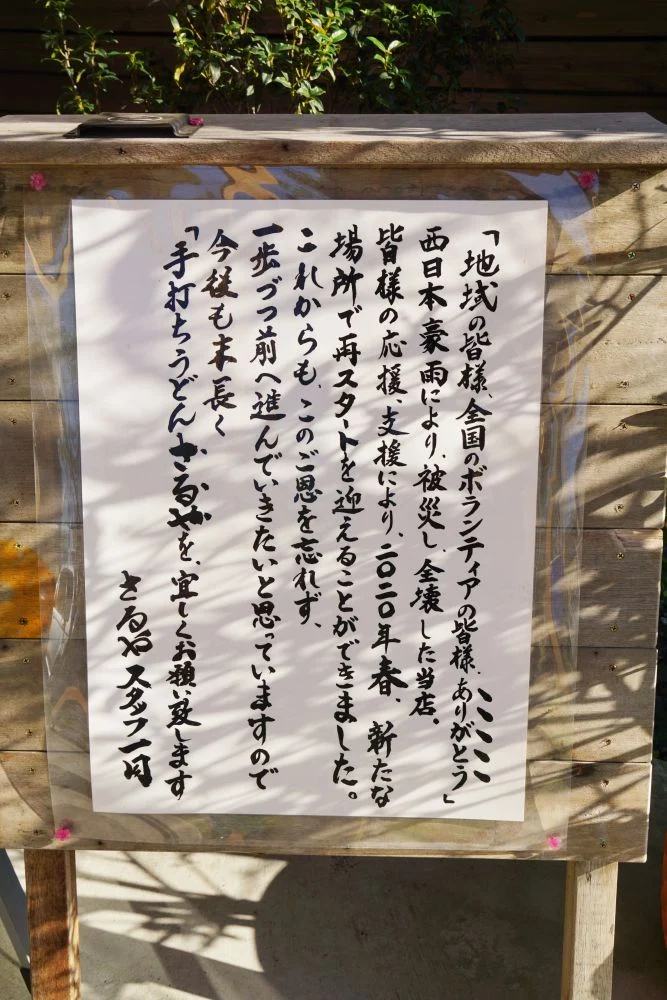 「地域の皆様、全国のボランティアの皆様、ありがとう」
西日本豪雨により、被災し、全壊した当店。
皆様の応援、支援により、二〇二〇年春、新たな
場所で再スタートを迎えることができました。
これからも、このご恩を忘れず、
一歩づつ前へ進んでいきたいと思っていますので
今後も末長く
「手打ちうどんさるやを、宜しくお願い致します
さるやスタッフ一同